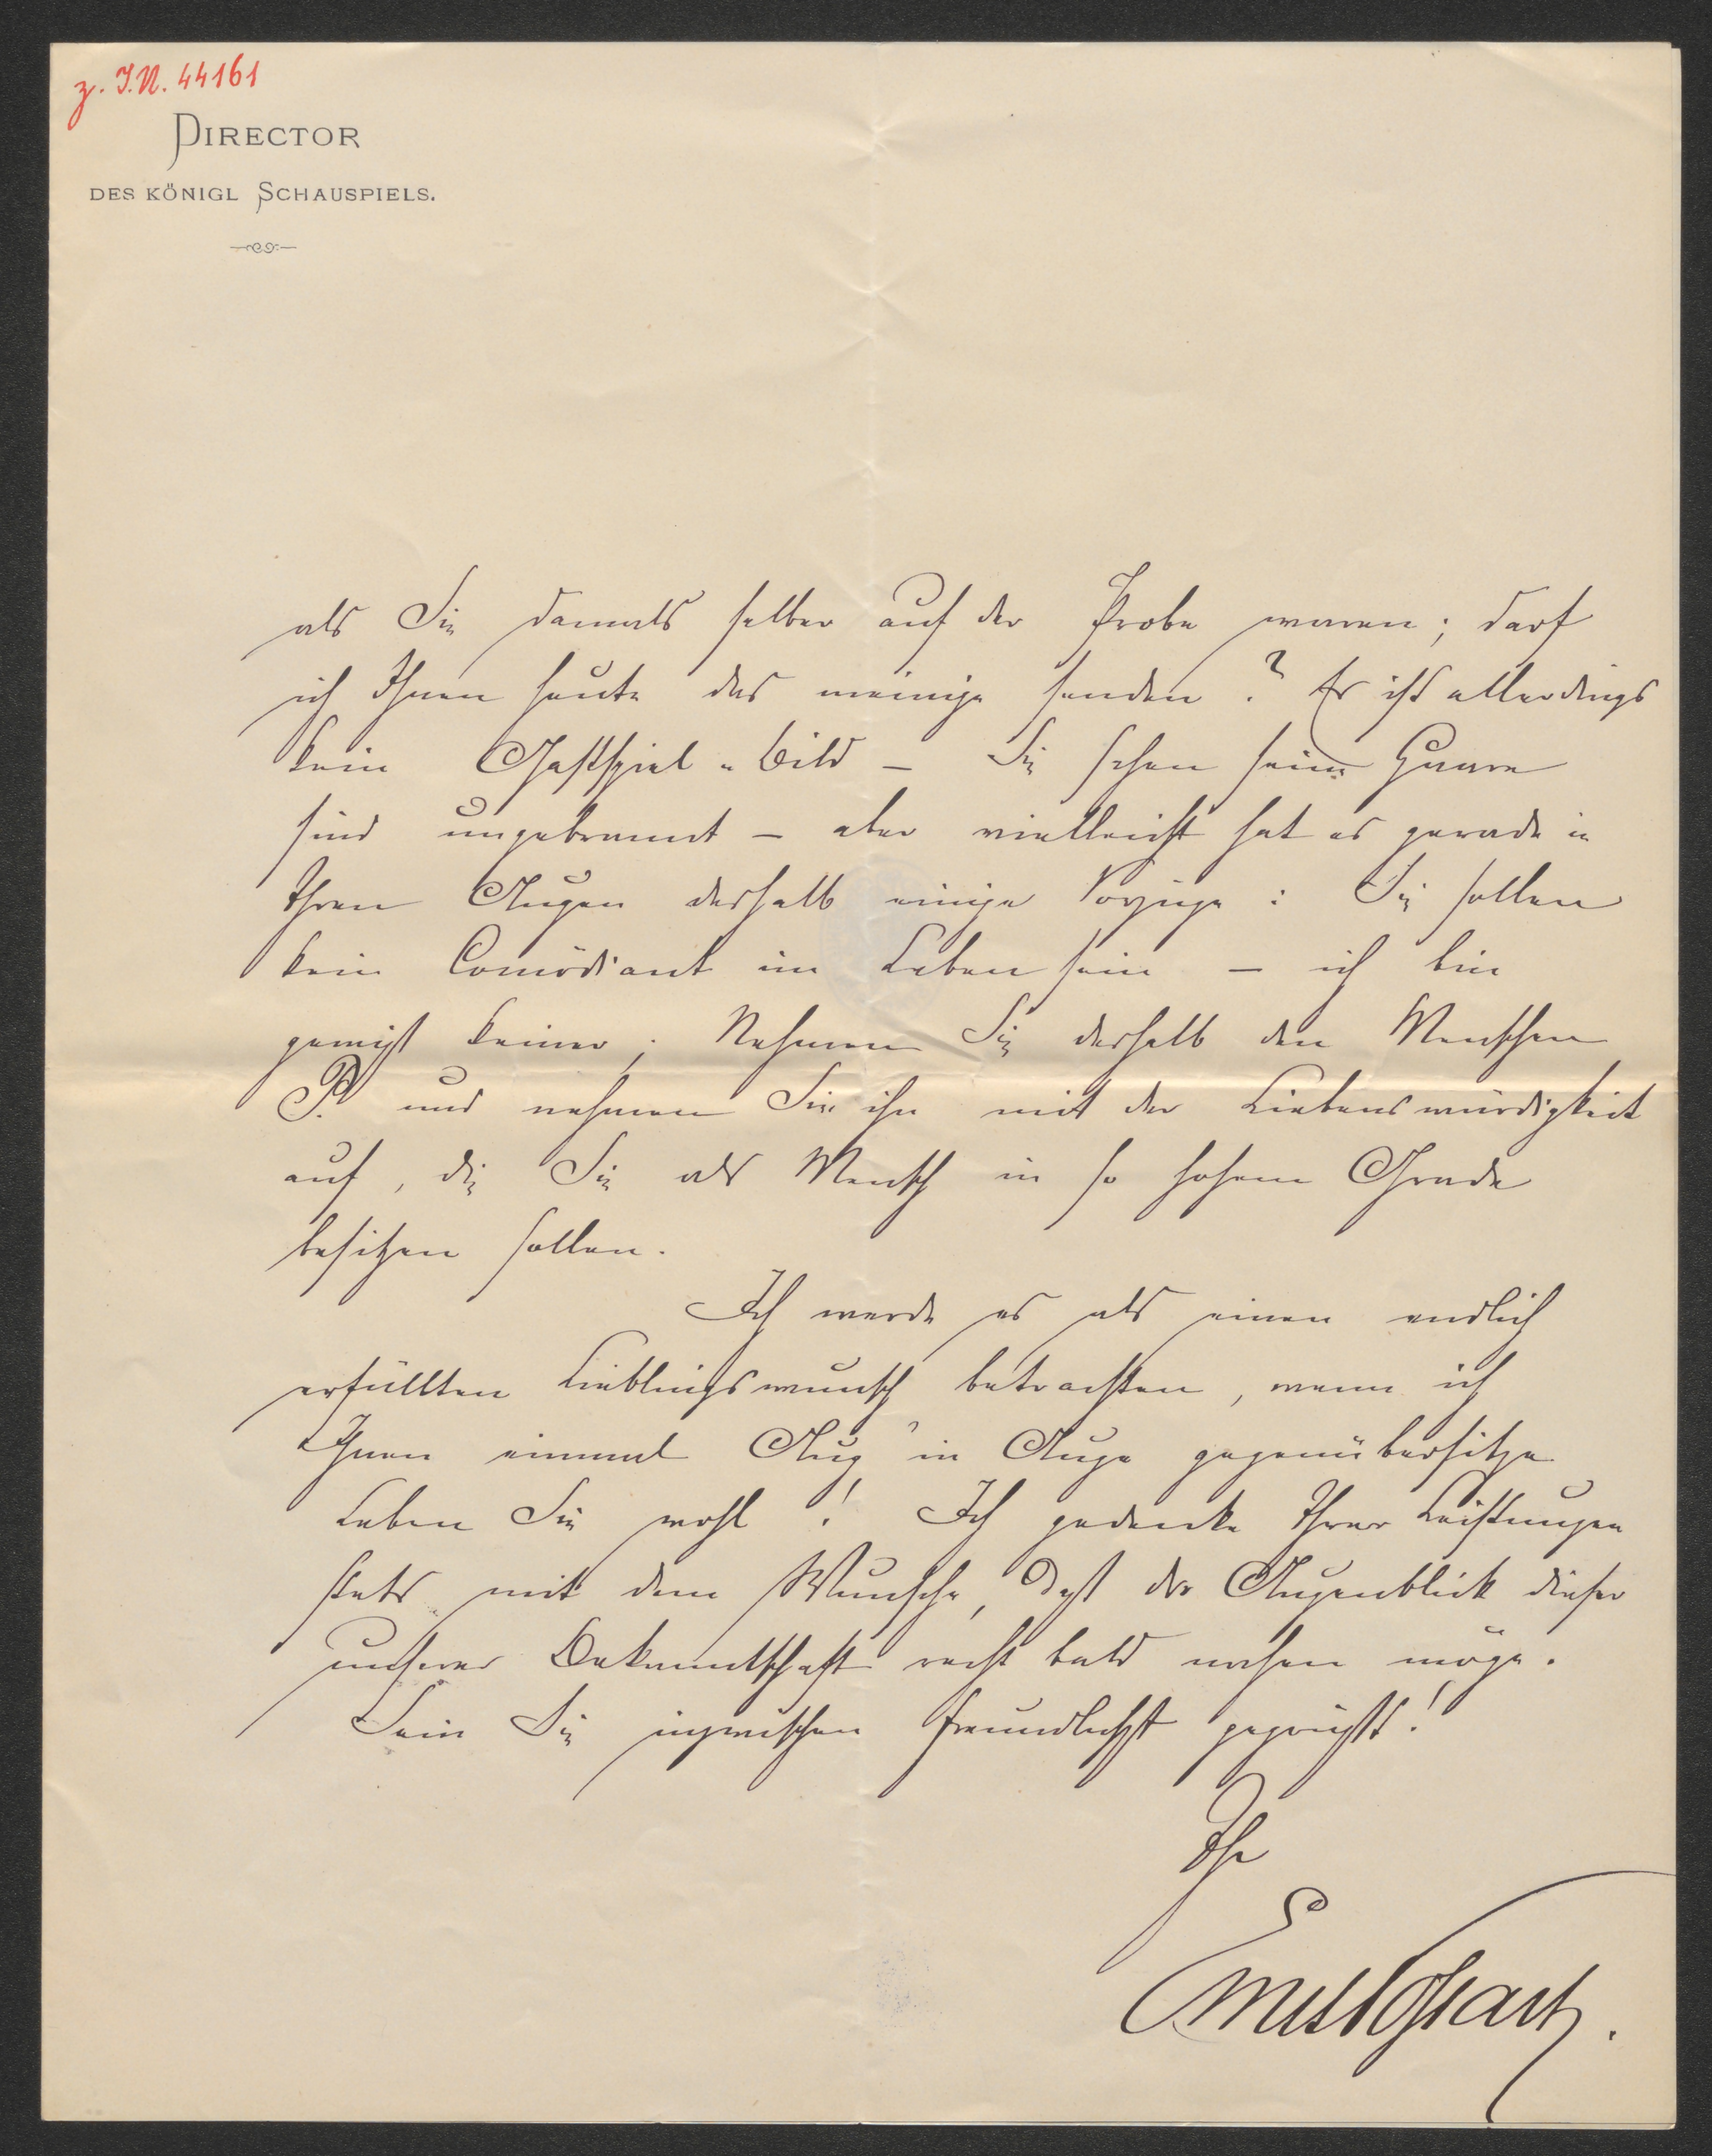 z. I.N. 44161
DIRECTOR
DES KÖNIGL SCHAUSPIELS.
als Sie damals selber auf der Probe waren; darf
ich Ihnen heute das meinige senden? Es ist allerdings
kein Gastspiel-Bild – Sie sehen seine Haare
sind ungebrannt – aber vielleicht hat es gerade in
Ihren Augen deshalb einige Vorzüge: Sie sollen
kein Comödiant im Leben sein – ich bin
gewiß keiner; Nehmen Sie deshalb den Menschen
P. und nehmen Sie ihn mit der Liebenswürdigkeit
auf, die Sie als Mensch in so hohem Grade
besitzen sollen.
Ich werde es als einen endlich
erfüllten Lieblingswunsch betrachten, wenn ich
Ihnen einmal Aug' in Auge gegenübersitze
Leben Sie wohl! Ich gedenke Ihrer Leistungen
stets mit dem Wunsche, daß der Augenblick dieser
unserer Bekanntschaft recht bald nahen möge.
Sein Sie inzwischen freundlichst gegrüßt!
Ihr
Ernst Possart.